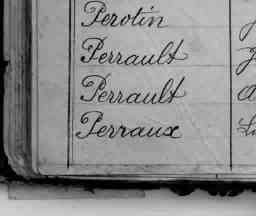 Perotin
Perrault
Perrault
Perraux